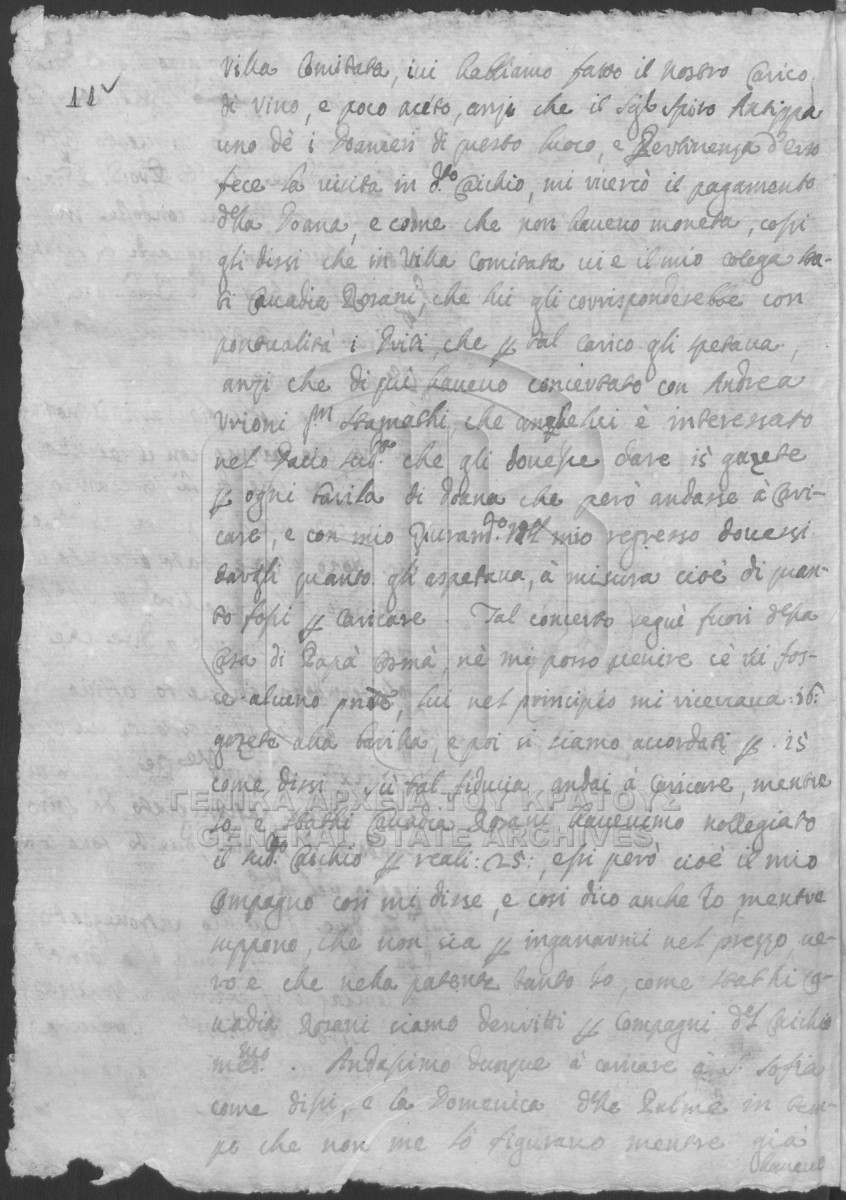 11
Villa Comitata, ivi habbiamo fatto il nostro Carico
di vino, e poco aceto, anzi che il Sigr Spiro Antippa
uno dè i Doanieri di questo luoco, e Pertinenza d'esso
fece la visita in dto Caichio, mi ricercò il pagamento
della Doana, e come che non havevo moneta, cossi
gli dissi che in Villa Comitata vi e il mio colega Sta-
ti Rosani, che lui gli corrisponderebbe con
pontualità i Driti, che p tal Carico gli spetava,
anzi che di quì havevo concertato con Andrea
Vrioni Stamathi, che è interessato
nel Dacio sudto che gli dovesse dare 15 gazete
p ogni barila di Doana che però andasse à Cari-
care, e con mio Giuramto nel mio regresso dovessi
dargli quanto gli aspetava, à misura cioè di quan-
to fossi p caricare. Tal concerto seguì fuori della
Casa di Papà Cosmà, nè mi posso venire cè vi fos-
se alcuno prite, lui nel principio mi ricercava :16:
gazete alla barilla, e poi si siamo accordati p. 15
come dissi. Sù tal fiducia andai à Caricare, mentre
Io e Stathi Rosani havevimo nollegiato
il sudto Caichio p reali :25:, essi però cioè il mio
Compagno cosi mi disse, e cosi dico anche Io, mentre
suppono, che non sia p inganarmi nel prezzo, ve-
ro e che nella patente tanto Io, come Stathi
Rosani siamo descritti p Compagni del Caichio
medmo. Andassimo dunque à caricare à S. Sofia
come dissi, e la Domenica delle Palme in tem-
po che non me lo figuravo mentre già
havevo
ΓΕΝΙΚΑ ΑΡΧΕΙΑ ΤΟΥ ΚΡΑΤΟΥΣ
GENERAL STATE ARCHIVES